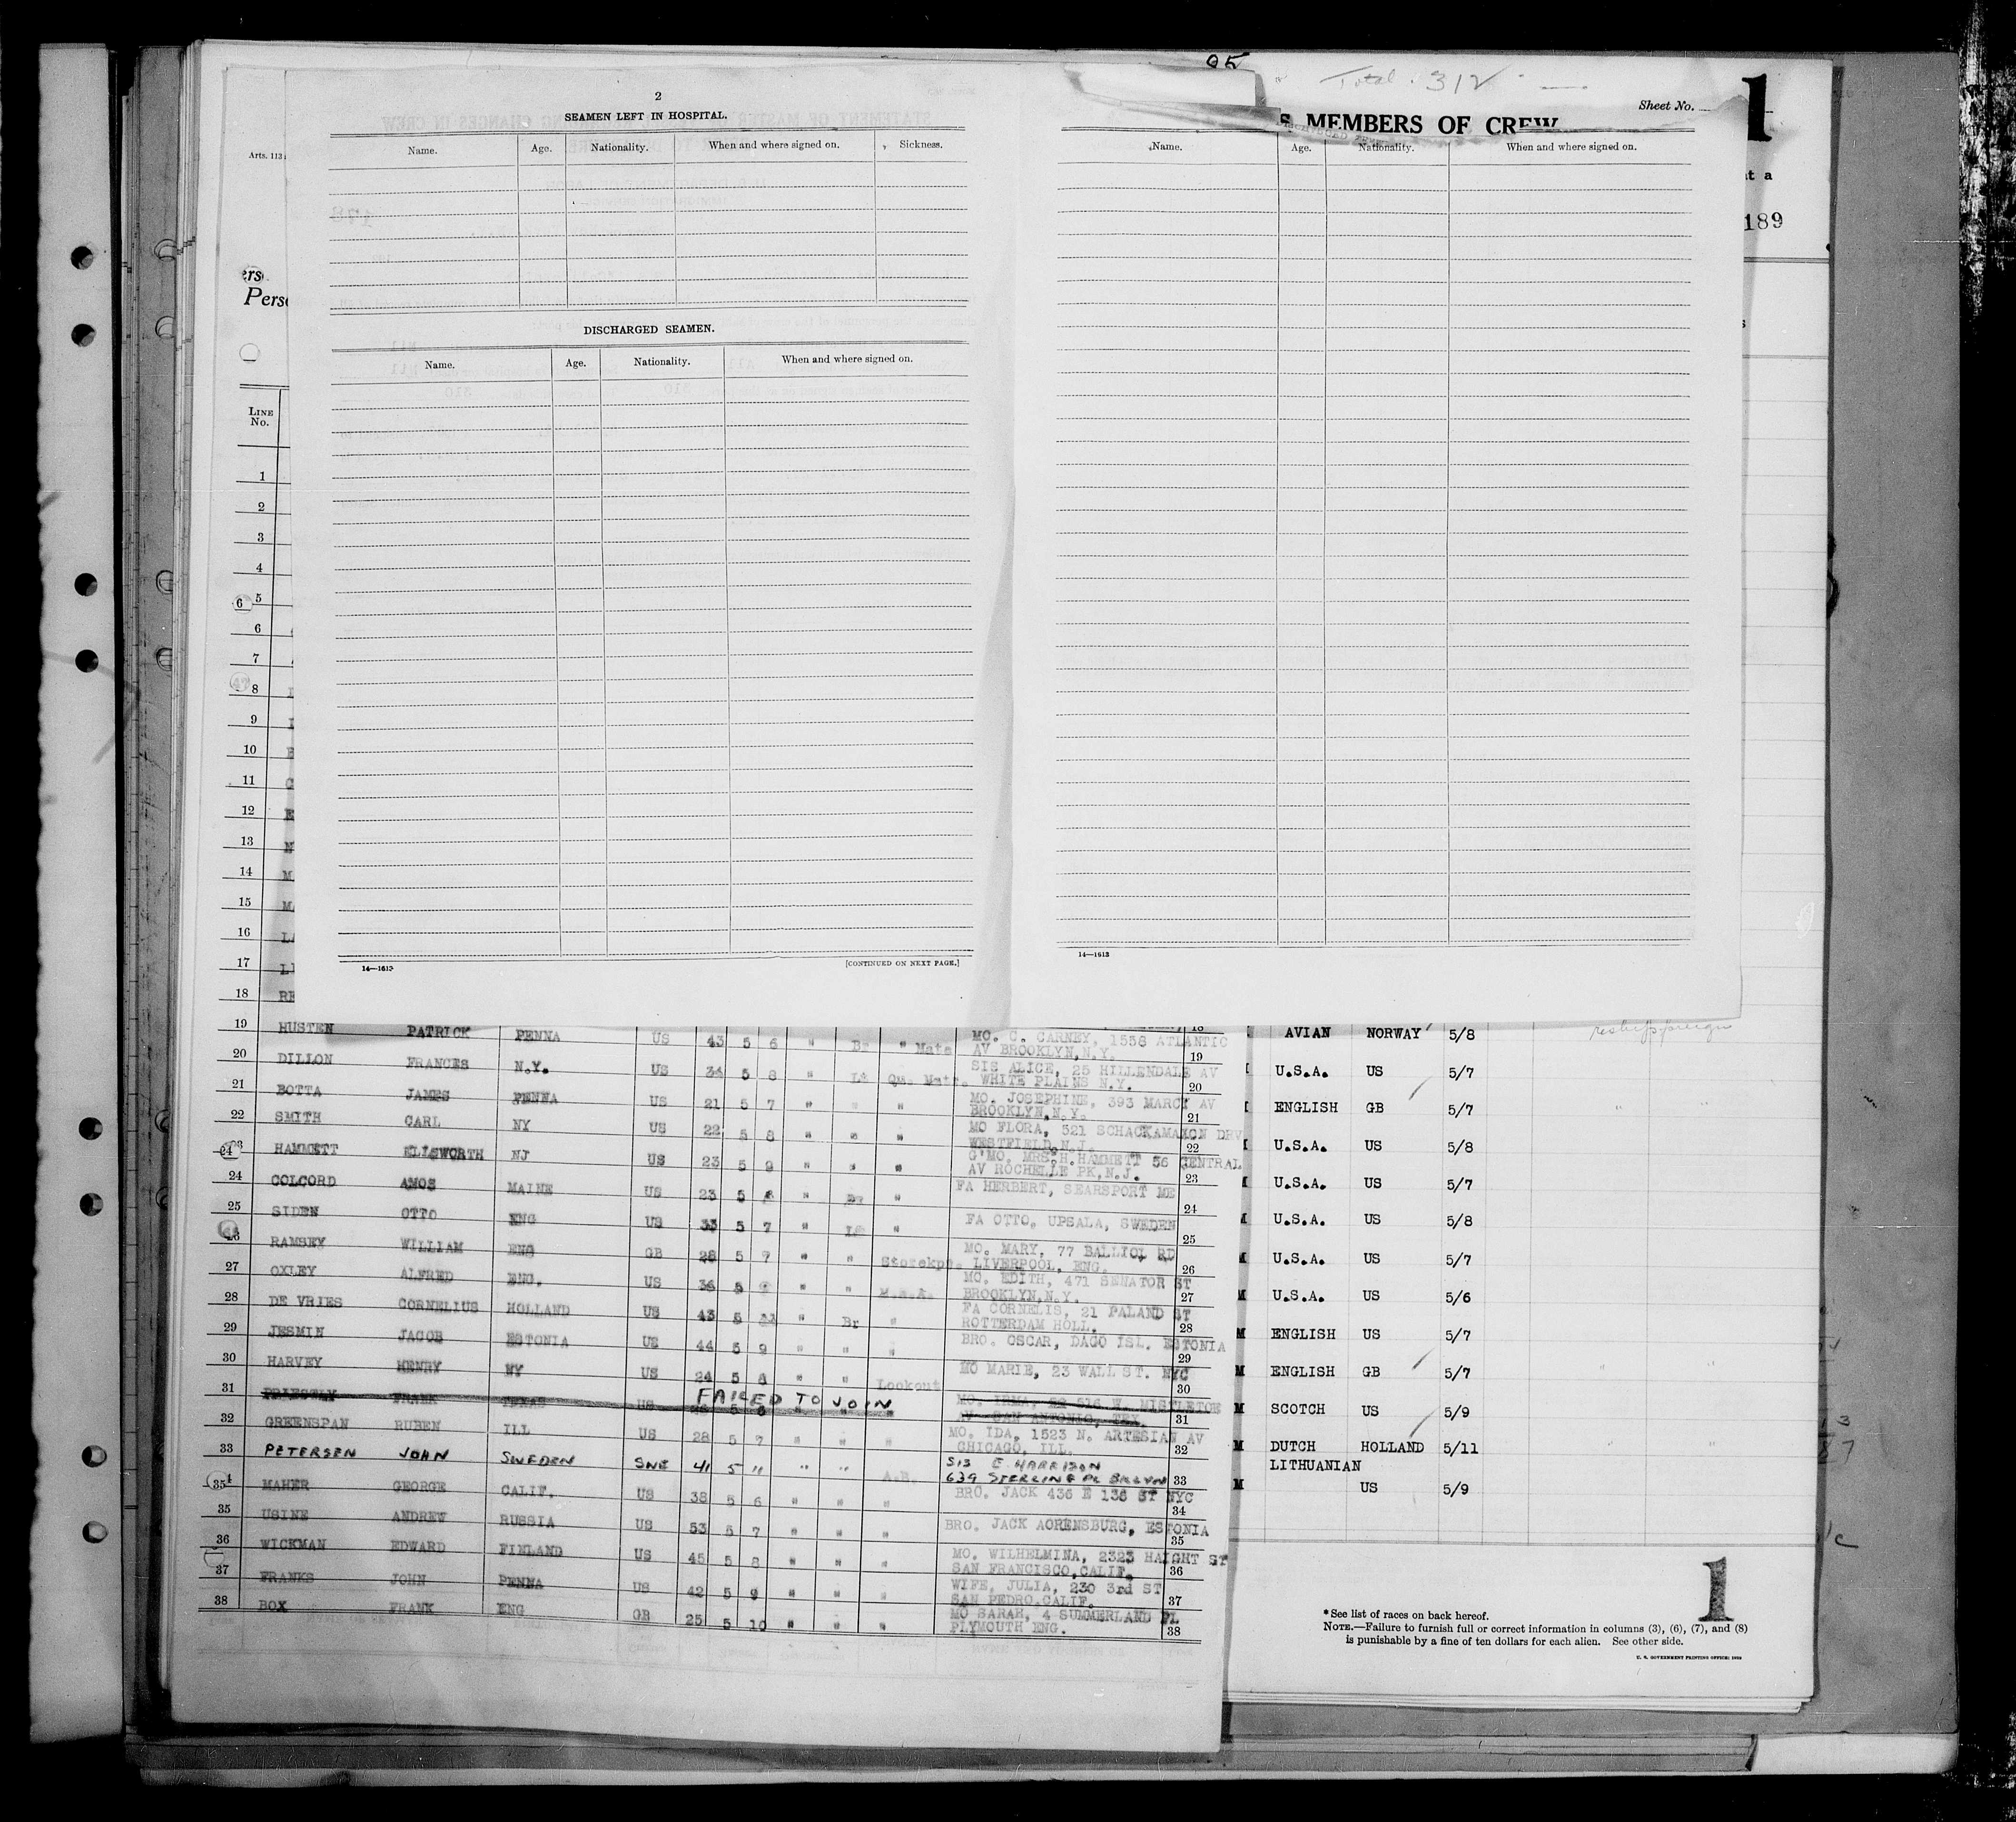 95
Total. 312
Sheet No.
1
2
SEAMEN LEFT IN HOSPITAL.
Name. Age. Nationality. When and where signed on. Sickness.
S MEMBERS OF CREW
Name. Age. Nationality. When and where signed on.
Arts. 113
t a
189
ers
Perso
DISCHARGED SEAMEN.
Name. Age. Nationality. When and where signed on.
LINE
No.
1
2
3
4
6 5
6
7
47 8
9
10
11
12
13
14
15
16
17
18 RE
14—1613 [CONTINUED ON NEXT PAGE.]
14—1613
19 HUSTEN PATRICK PENNA US 43 5 6 " Br " Mate MO. C. CARNEY, 1558 ATLANTIC
AV BROOKLYN,N.Y. 19
20 DILLON FRANCES N.Y. US 34 5 8 " Lt Qu. Matr. SIS ALICE, 25 HILLENDALE AV
WHITE PLAINS N.Y. 20
21 BOTTA JAMES PENNA US 21 5 7 " " " MO. JOSEPHINE, 393 MARCY AV
BROOKLYN,N.Y. 21
22 SMITH CARL NY US 22 5 8 " " " MO FLORA, 521 SCHACKAMAXON DRV
WESTFIELD,N.J. 22
23 HAMMETT ELLSWORTH NJ US 23 5 9 " " " G'MO. MRS.H.HAMMETT 56 CENTRAL
AV ROCHELLE PK,N.J. 23
24 COLCORD AMOS MAINE US 23 5 8 " Br " FA HERBERT, SEARSPORT ME 24
25 SIDEN OTTO ENG US 33 5 7 " Lt " FA OTTO, UPSALA, SWEDEN 25
26 RAMSEY WILLIAM ENG GB 28 5 7 " " Storekpr. MO. MARY, 77 BALLIOL RD
LIVERPOOL, ENG. 26
27 OXLEY ALFRED ENG. US 36 5 " " MO. EDITH, 471 SENATOR ST
BROOKLYN,N.Y. 27
28 DE VRIES CORNELIUS HOLLAND US 43 5 11 " Br " FA CORNELIS, 21 PALAND ST
ROTTERDAM HOLL. 28
29 JESMIN JACOB ESTONIA US 44 5 9 " " " BRO. OSCAR, DAGO ISL. ESTONIA 29
30 HARVEY HENRY NY US 24 5 8 " " Lookout MO MARIE, 23 WALL ST. NYC 30
31 PRIESTLY FRANK TEXAS US FAILED TO JOIN MO. IRMA, 516 W. MISTLETOE
AV. SAN ANTONIO, TEX. 31
32 GREENSPAN RUBEN ILL US 28 5 7 " " " MO. IDA, 1523 N. ARTESIAN AV
CHICAGO, ILL. 32
33 PETERSEN JOHN SWEDEN SWE 41 5 " " " A.B SIS E HARRISON
639 STERLING PL BKLYN 33
MAHER GEORGE CALIF. US 38 5 6 " " " BRO. JACK 436 E 136 ST NYC 34
35 USINE ANDREW RUSSIA US 53 5 7 " " " BRO. JACK AORENSBURG, ESTONIA 35
36 WICKMAN EDWARD FINLAND US 45 5 8 " " " MO. WILHELMINA, 2323 HAIGHT ST
SAN FRANCISCO,CALIF. 36
37 FRANKS JOHN PENNA US 42 5 9 " " " WIFE, JULIA, 230 3rd ST
SAN PEDRO,CALIF. 37
38 BOX FRANK ENG GB 25 5 10 " " " MO SARAH, 4 SUMMERLAND PL
PLYMOUTH ENG. 38
AVIAN NORWAY 5/8
U.S.A. US 5/7
ENGLISH GB 5/7
U.S.A. US 5/8
U.S.A. US 5/7
M U.S.A. US 5/8
M U.S.A. US 5/7
M U.S.A. US 5/6
M ENGLISH US 5/7
M ENGLISH GB 5/7
M SCOTCH US 5/9
M DUTCH HOLLAND 5/11
LITHUANIAN
M US 5/9
1
*See list of races on back hereof.
NOTE.—Failure to furnish full or correct information in columns (3), (6), (7), and (8)
is punishable by a fine of ten dollars for each alien. See other side.
U. S. GOVERNMENT PRINTING OFFICE: